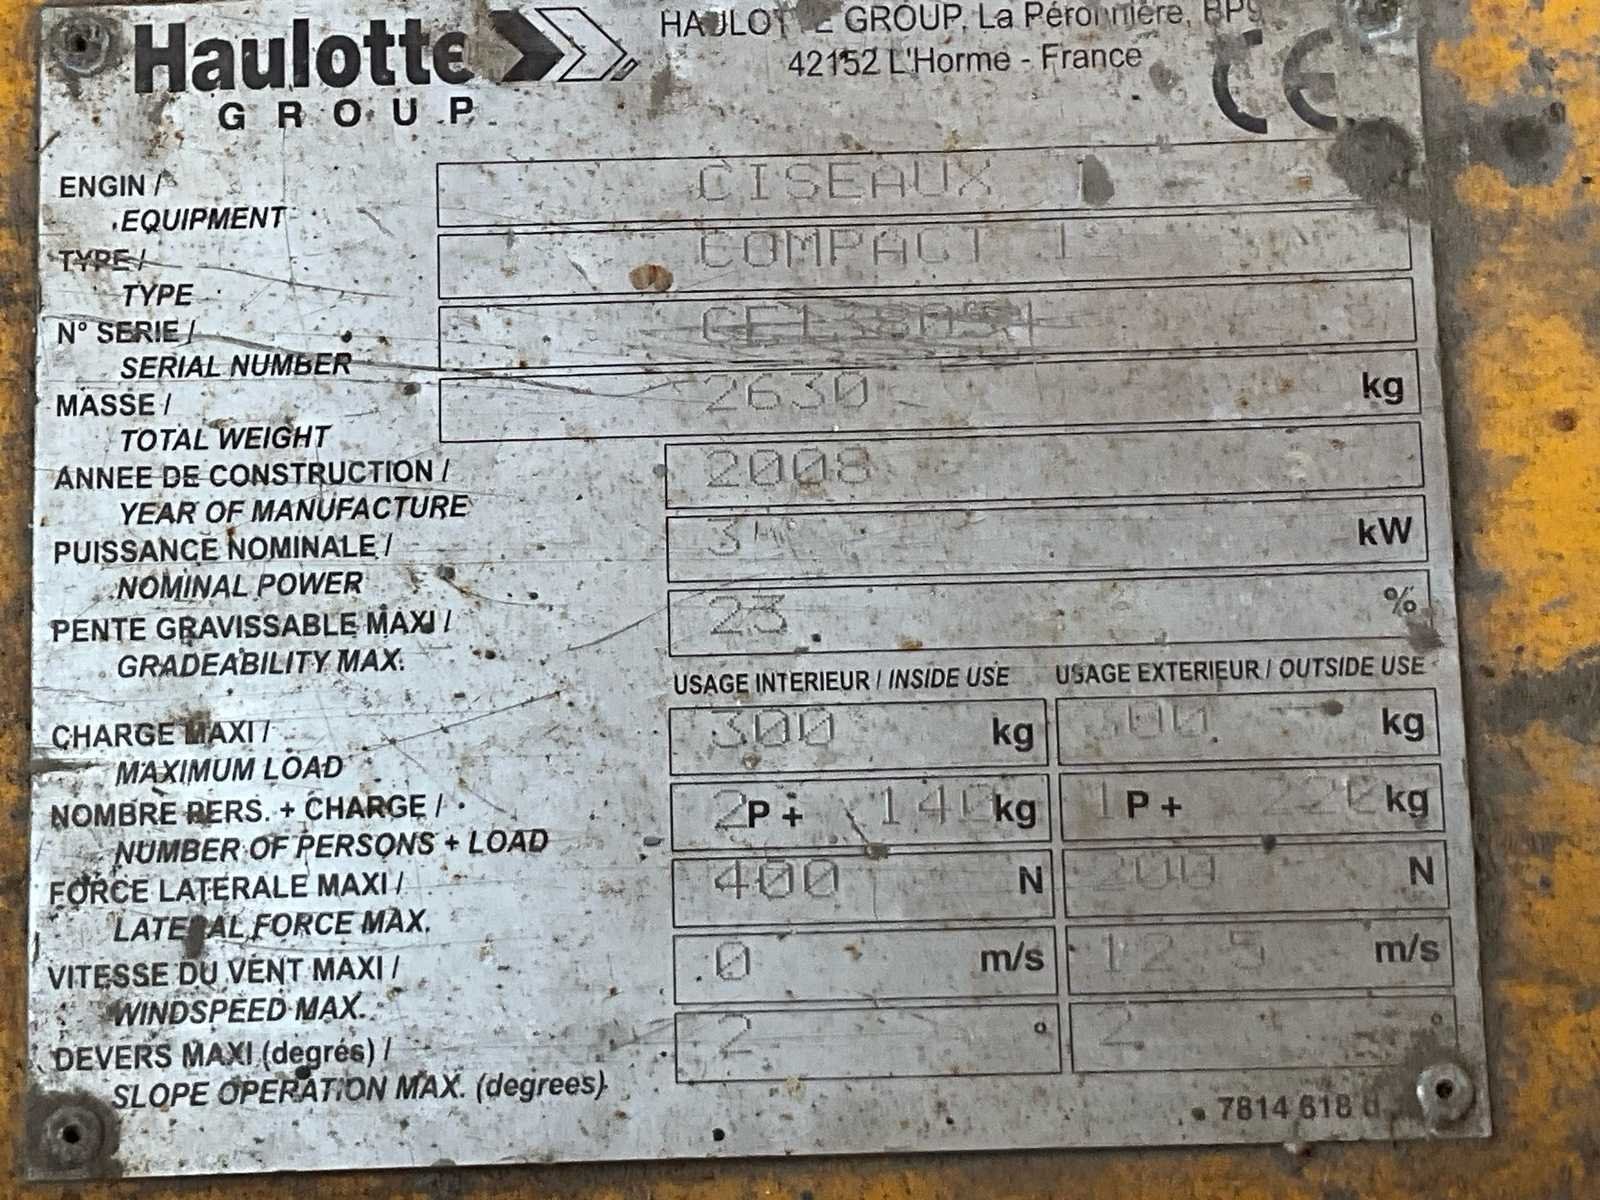 Haulotte
GROUP
HAULOTTE GROUP, La Péronnière, BP9
42152 L'Horme - France
CE
ENGIN / CISEAUX
EQUIPMENT
TYPE / COMPACT 1
TYPE
N° SERIE /
SERIAL NUMBER
MASSE / 2630 kg
TOTAL WEIGHT
ANNEE DE CONSTRUCTION / 2008
YEAR OF MANUFACTURE
PUISSANCE NOMINALE / kW
NOMINAL POWER
PENTE GRAVISSABLE MAXI / 23 %
GRADEABILITY MAX.
USAGE INTERIEUR / INSIDE USE USAGE EXTERIEUR / OUTSIDE USE
CHARGE MAXI / 300 kg 300 kg
MAXIMUM LOAD
NOMBRE PERS. + CHARGE / 2 P + 140 kg 1 P + 220 kg
NUMBER OF PERSONS + LOAD
FORCE LATERALE MAXI / 400 N 200 N
LATERAL FORCE MAX.
VITESSE DU VENT MAXI / 0 m/s 12.5 m/s
WINDSPEED MAX.
DEVERS MAXI (degrés) / 2 ° 2 °
SLOPE OPERATION MAX. (degrees)
7814 618